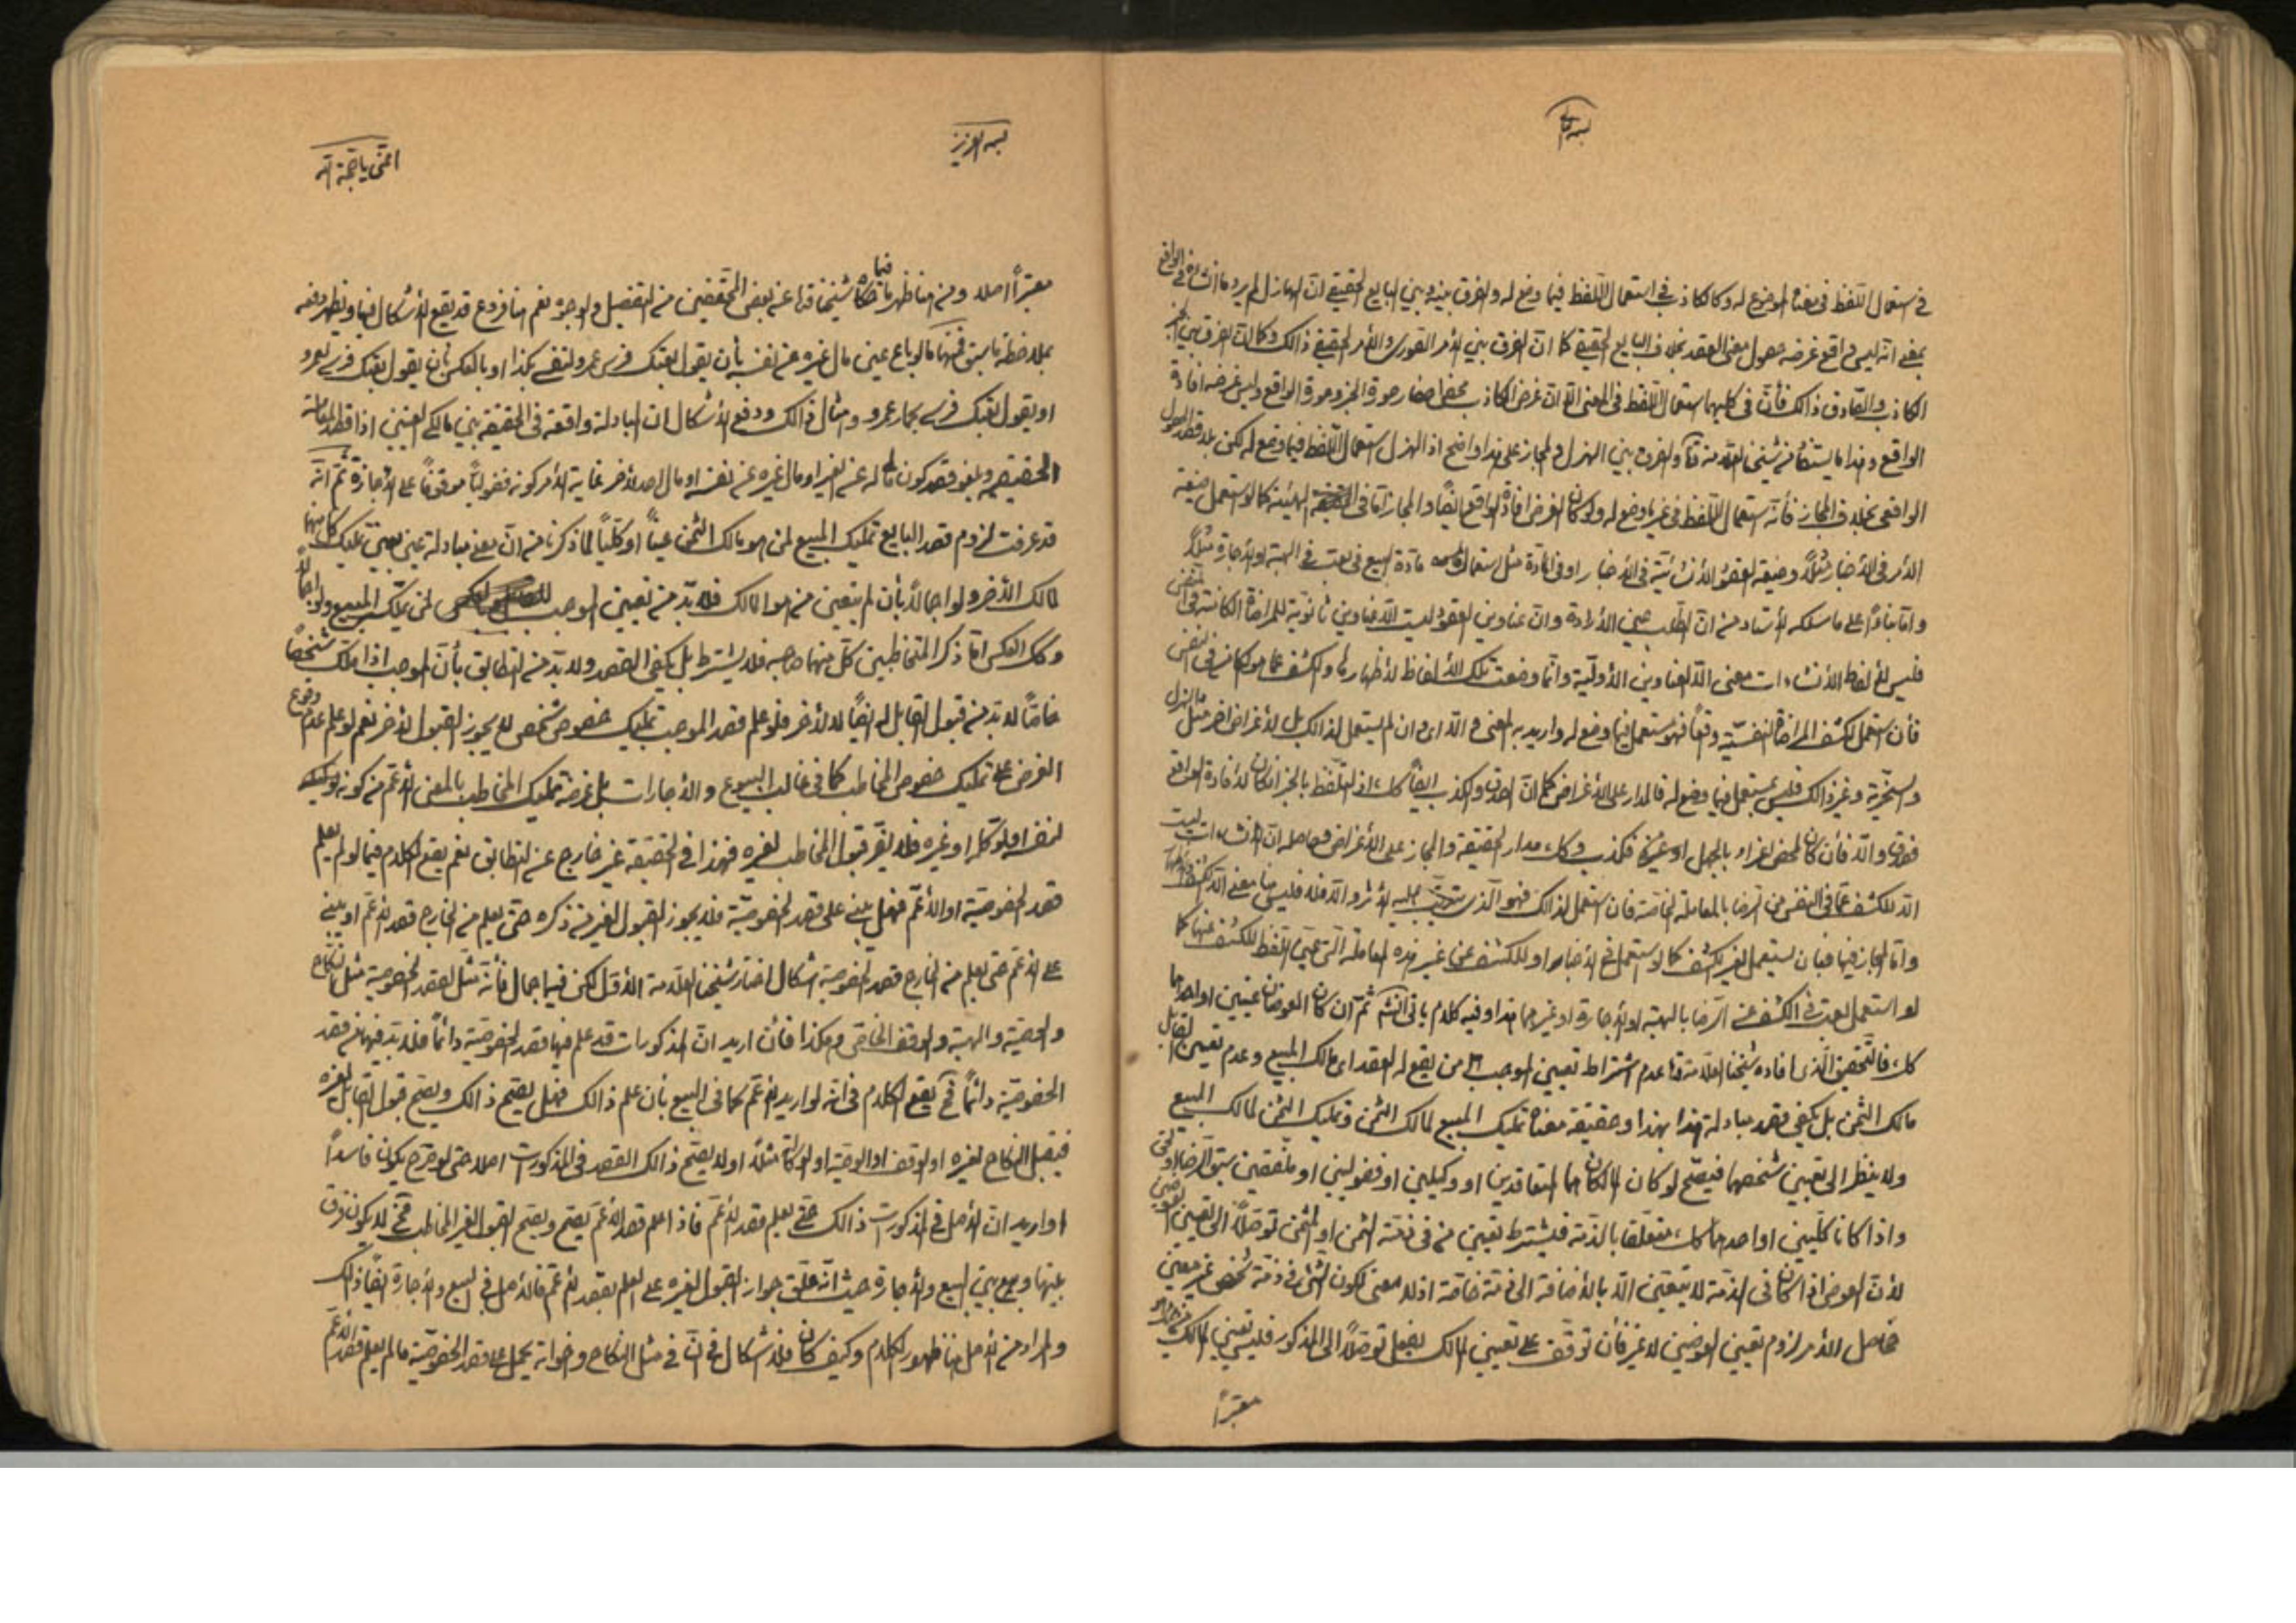 بسمه تعالى
فى استعمال اللّفظ فى معناه الموضوع له وكالكاذب فى استعمال اللّفظ فيما وضع له والفرق بينه وبين البايع الحقيقى انّ الهازل لم يرد ما انشائه فى الواقع
بمعنى انّه ليس واقع غرضه حصول معنى العقد بخلاف البايع الحقيقى كما انّ الفرق بين الأمر الصّورى والأمر الحقيقى ذالك وكما انّ الفرق بين
الكاذب والصّادق ذالك فأنّ فى كليهما استعمال اللّفظ فى المعنى الّا انّ غرض الكاذب محض احضار صورة الخبر وصورة الواقع وليس غرضه افادة
الواقع وهذا ما يستفاد من شيخنا العلّامة والفرق بين الهزل والمجاز على هذا واضح اذ الهزل استعمال اللّفظ فيما وضع له لكن بلا قصد
الواقعى بخلاف المجاز فأنّه استعمال اللّفظ فى غير ما وضع له ولو كان الغرض افادة الواقع ايضاً والمجاز امّا فى الهيئة كما لو استعمل صيغة
الأمر فى الأخبار مثلاً وصيغة العقود الأنشائيّة فى الأخبار او فى المادّة مثل استعمال مادّة البيع فى بعت فى الهبة او الأجارة مثلاً
وامّا بناءً على ما سلكه الأستاد من انّ الطّلب عين الأرادة وانّ عناوين العقود ليست الّا عناوين ثانويّة للمراضاة الكائنة فى النّفس
فليس لألفاظ الأنشاءات معنى الّا العناوين الأوليّة وانّما وضعت تلك الألفاظ لأظهارها والكشف عمّا هو كائن فى النّفس
فأن استعمل لكشف المراضاة النّفسيّة وقعاً فهو مستعمل فيما وضع له واريد به المعنى والّا اى وان لم يستعمل لذالك بل لأغراض اخر مثل الهزل
والسّخريّة وغير ذالك فليس بمستعمل فيما وضع له فالمدار على الأغراض كما انّ الصدق والكذب ايضاً كك اذ التلفّظ بالخبر ان كان لأفادة الواقع
فصدق والّا فأن كان لمحض اغراء بالجهل او غيره فكذب وكك مدار الحقيقة والمجاز على الأغراض وحاصله انّ الأنشاءات ليست
الّا للكشف عمّا فى النّفس من الرّضا بالمعاملة الخاصّة فأن استعمل لذالك فهو الّذى يترتّب عليه الأثر والّا فلا فليس لها معنى الّا
وامّا المجاز فيها فبأن يستعمل لغير الكشف كما لو استعمل فى الأخبار او للكشف عن غير هذه المعاملة الّتى عيّن اللّفظ للكشف عنها كما
لو استعمل بعت فى الكشف عن الرّضا بالهبة او الأجارة او غيرهما هذا وفيه كلام يأتى انشاء اللّه ثمّ ان كان العوضان عينين او احدهما
كك فالتّحقيق الّذى افاده شيخنا العلّامة عدم اشتراط تعيين الموجب من يقع له العقد اى مالك المبيع وعدم تعيين القابل
مالك الثّمن بل يكفى قصد مبادلة هذا بهذا وحقيقة معناه تمليك المبيع لمالك الثّمن وتمليك الثّمن لمالك المبيع
ولا ينظر الى تعيين شخصهما فيصحّ لو كان المالكان هما المتعاقدين او وكيلين او فضوليين او ملفّقين
واذا كانا كلّيين او احدهما كك متعلّقا بالذّمة فيشترط تعيين من فى ذمّته الثّمن او المثمن توصّلاً الى تعيين العوضين
لأنّ العوض اذا كان فى الذّمة لا يتعيّن الّا بالأضافة الى ذمّة خاصّة اذ لا معنى لكون الشّىء فى ذمّة شخص غير معيّن
فحاصل الأمر لزوم تعيين العوضين لا غير فأن توقّف على تعيين المالك يفعل توصّلاً الى المذكور فليس تعيين المالك
معتبراً
بسمه العزيز
اغثنى يا حجّة اللّه
معتبراً اصلا ومن هنا ظهر ما فيما حكاه شيخنا عن بعض المحقّقين من التفصيل والوجوه نعم هنا فروع قد يقع الأشكال فيها ويظهر دفعه
بملاحظة ما سبق فمنها ما لو باع عين مال غيره عن نفسه بأن يقول بعتك فرس عمرو لنفسى بكذا او بالعكس بأن يقول بعتك فرسى لعمرو
او يقول بعتك فرسى بحمار عمرو وامثال ذالك ودفع الأشكال ان المبادلة واقعة فى الحقيقة بين مالكى العينين اذا قصد المعاملة
الحقيقيّة ويلغو قصد كون ماله عن الغير او مال غيره عن نفسه او مال احد لأخر غاية الأمر كونه فضوليّاً موقوفاً على الأجازة ثمّ انّه
قد عرفت لزوم قصد البايع تمليك المبيع لمن هو مالك الثّمن عيناً او كلّياً لما ذكرنا من انّ معنى مبادلة عين بعين تمليك كلّ منهما
لمالك الأخر ولو اجمالاً بأن لم يتعيّن من هو المالك فلا بدّ من تعيين الموجب لمن يملّك المبيع ولو اجمالاً
وكك العكس امّا ذكر المتخاطبين كلّ منهما صاحبه فلا يشترط بل يكفى القصد ولا بدّ من التطابق بأنّ الموجب اذا ملّك شخصاً
خاصّاً لا بدّ من قبول القابل له ايضاً لا لأخر فلو علم قصد الموجب تمليك خصوص شخص لا يجوز القبول لأخر نعم لو علم عدم وقوع
الغرض على تمليك خصوص المخاطب كما فى غالب البيوع والأجارات بل غرضه تمليك المخاطب بالمعنى الأعمّ من كونه
لنفسه او لموكّله او غيره فلا يضرّ قبول المخاطب لغيره فهذا فى الحقيقة غير خارج عن التطابق نعم يقع الكلام فيما لو لم يعلم
قصد الخصوصيّة او الأعمّ فهل يبنى على قصد الخصوصيّة فلا يجوز القبول لغير من ذكره حتّى يعلم من الخارج قصد الأعمّ او يبنى
على الأعمّ حتّى يعلم من الخارج قصد الخصوصيّة اشكال اختار شيخنا العلّامة الأوّل لكن فيه اجمال فأنّه مثّل لقصد الخصوصيّة مثل النّكاح
والوصيّة والهبة والوقف الخاصّ وهكذا فأن اريد انّ المذكورات قد علم فيها قصد الخصوصيّة دائماً فلا بدّ فيها من قصد
الخصوصيّة دائماً فح يقع الكلام فى انّه لو اريد الأعمّ كما فى البيع بأن علم ذالك فهل يصحّ ذالك ويصحّ قبول القابل لغيره
فيقبل النّكاح لغيره او الوقف او الوصيّة او الوكالة مثلاً او لا يصحّ ذالك القصد فى المذكورات اصلا حتّى لو صرّح يكون فاسداً
او اريد انّ الأصل فى المذكورات ذالك حتّى يعلم قصد الأعمّ فاذا علم قصد الأعمّ يصحّ ويصحّ القبول لغير المخاطب فح لا يكون فرق
بينها وبين البيع والأجارة حيث انّه علّق جواز القبول لغيره على العلم بقصد الأعمّ فالأصل فى البيع والأجارة ايضاً ذالك
والمراد من الأصل هنا ظهور الكلام وكيف كان فلا اشكال فى انّ فى مثل النكاح واخواته يحمل على قصد الخصوصيّة ما لم يعلم قصد الأعمّ